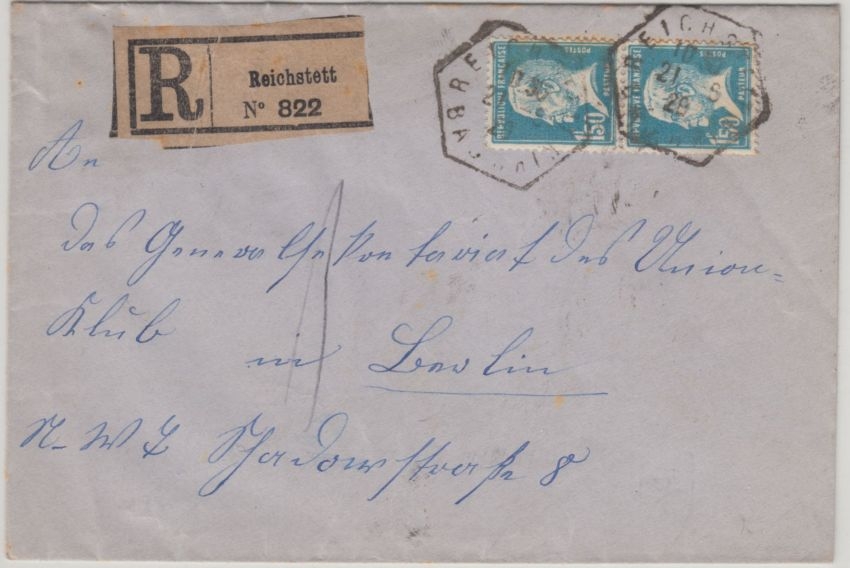 R Reichstett
N° 822
RÉPUBLIQUE FRANÇAISE POSTES PASTEUR 1F50
RÉPUBLIQUE FRANÇAISE POSTES PASTEUR 1F50
REICHS
10
21 5
26
An
das Generalsekretariat des Union=
Klub
in Berlin
N-W 7 Schadowstraße 8